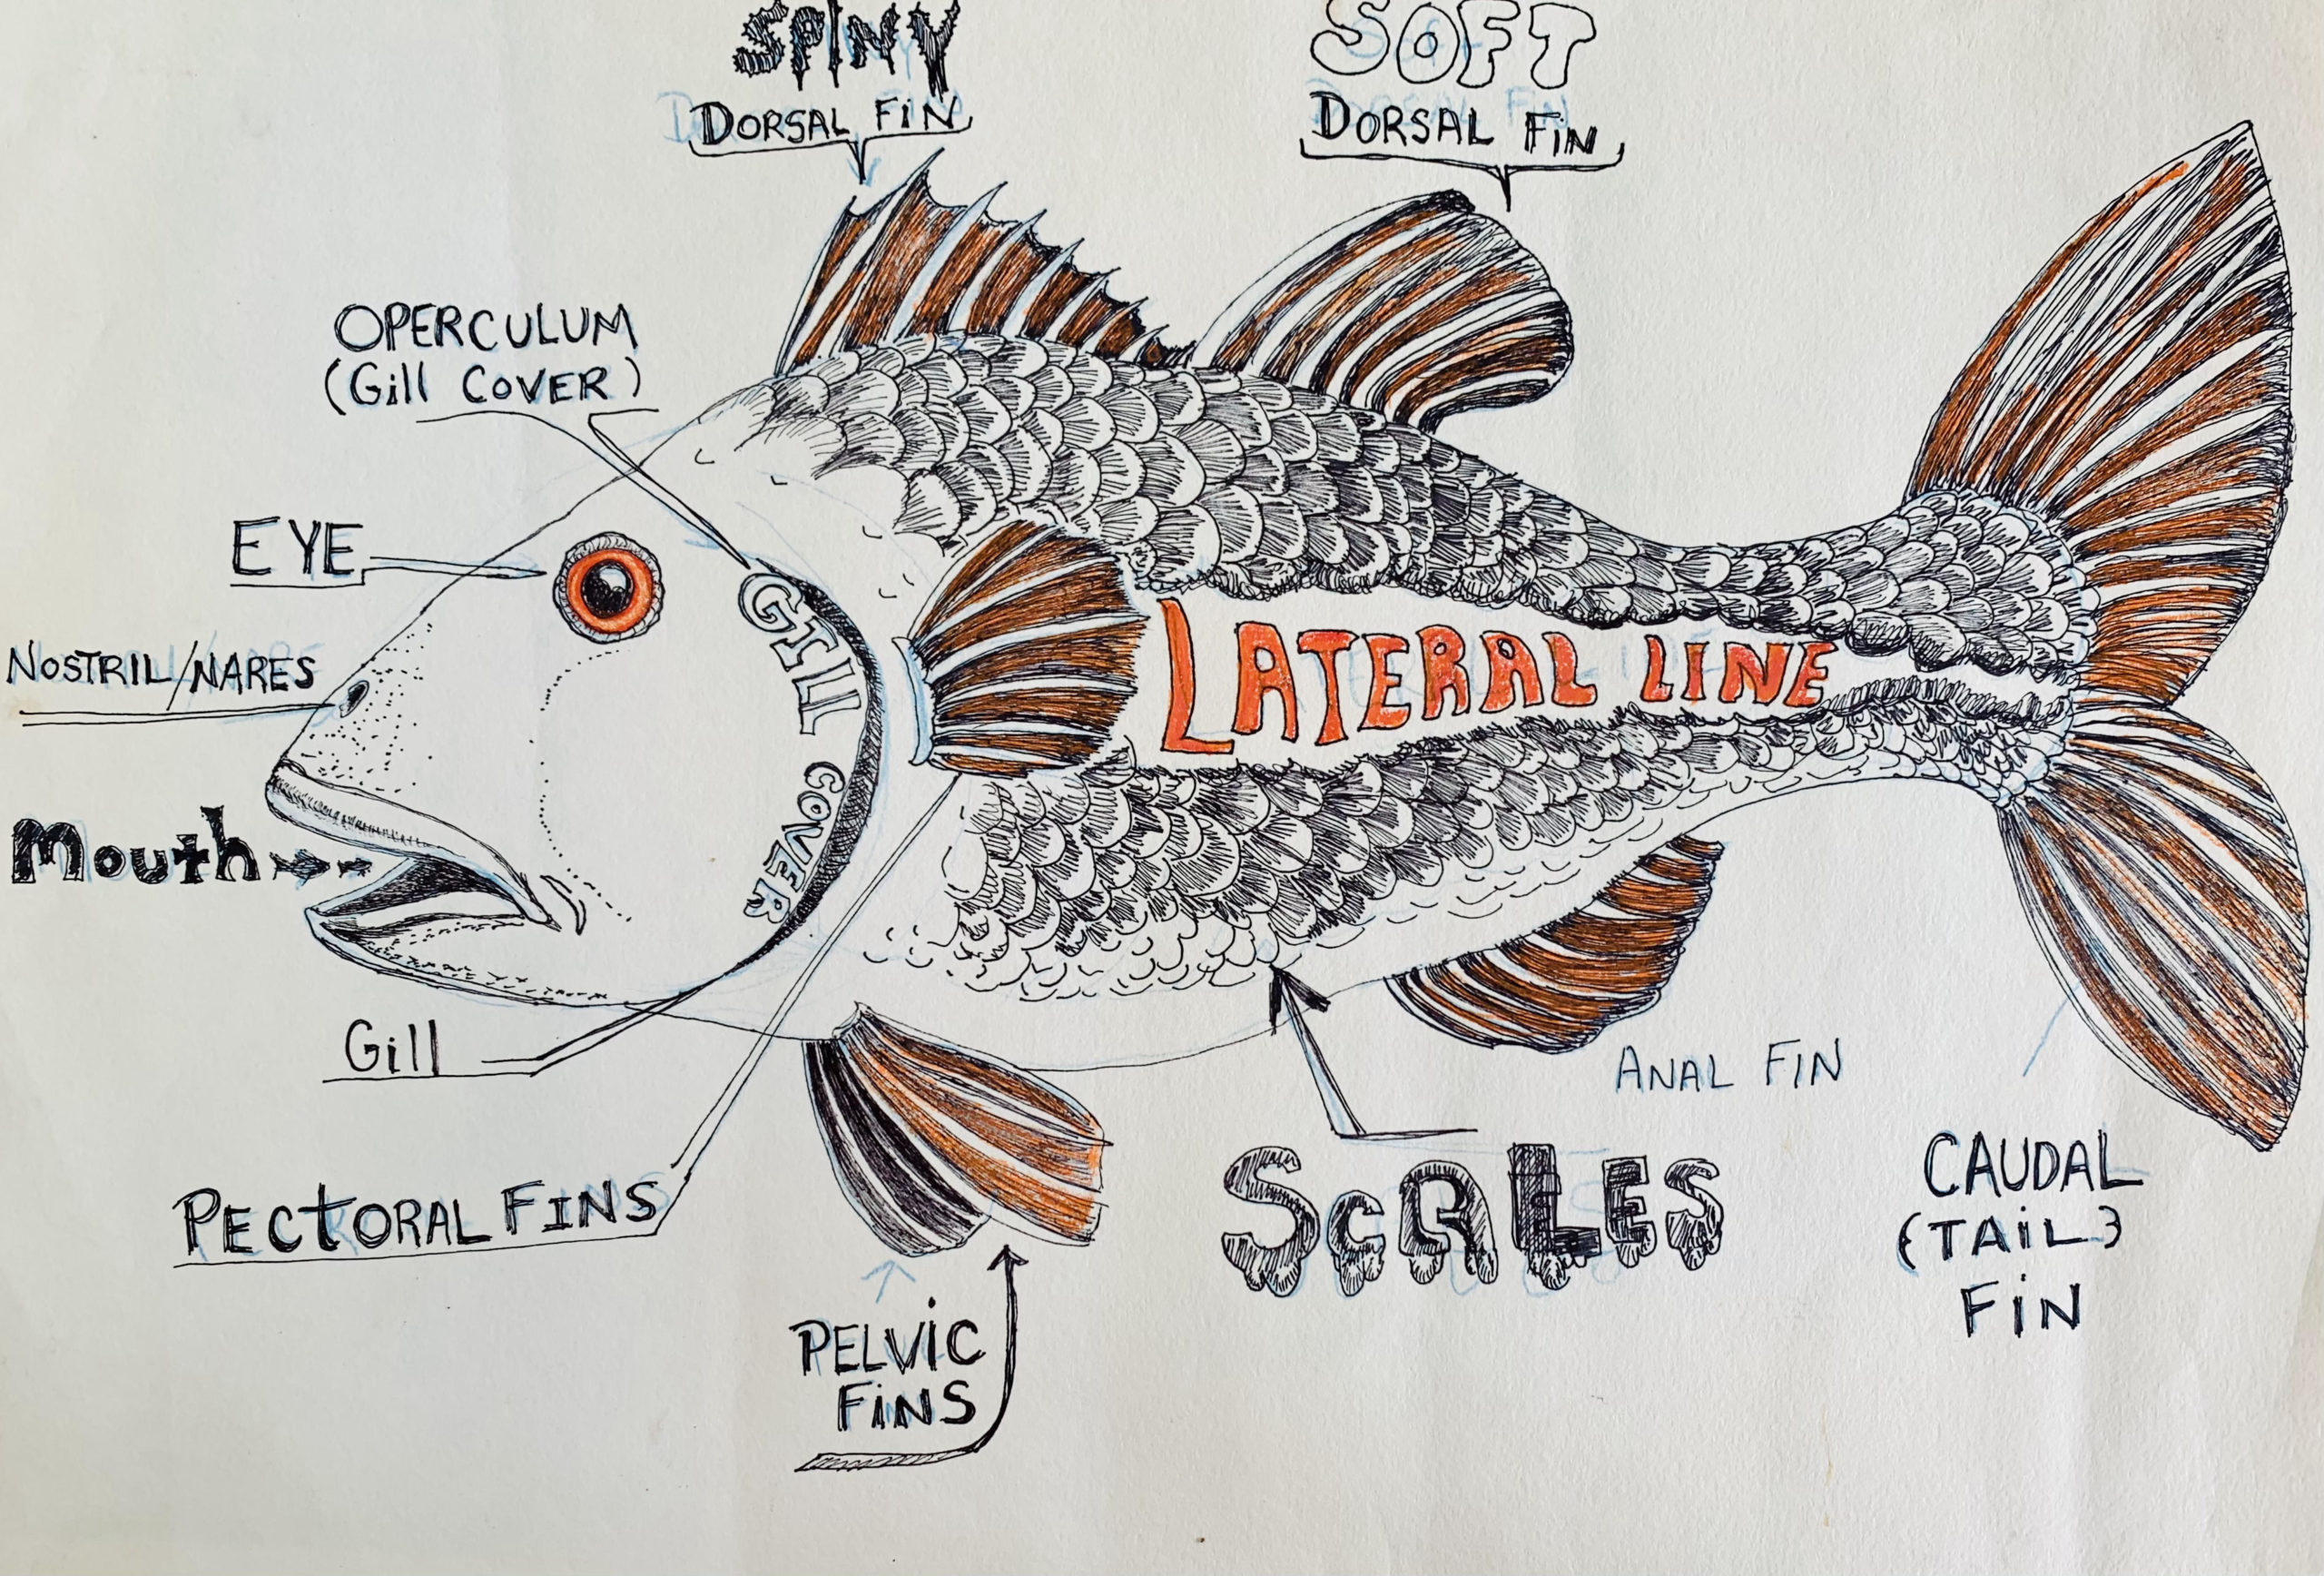 SPINY
DORSAL FIN
SOFT
DORSAL FIN
OPERCULUM
(Gill COVER)
EYE
NOSTRIL/NARES
Mouth
GILL COVER
LATERAL LINE
Gill
PECTORAL FINS
PELVIC
FINS
SCALES
ANAL FIN
CAUDAL
(TAIL)
FIN